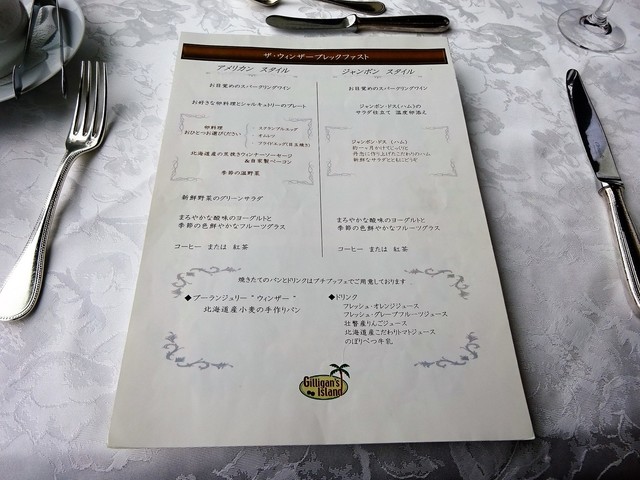 ザ・ウィンザーブレックファスト
アメリカン スタイル
お目覚めのスパークリングワイン
お好きな卵料理とシャルキュトリーのプレート
卵料理
おひとつお選びください
スクランブルエッグ
オムレツ
フライドエッグ(目玉焼き)
北海道産の荒挽きウィンナーソーセージ
&自家製ベーコン
季節の温野菜
新鮮野菜のグリーンサラダ
まろやかな酸味のヨーグルトと
季節の色鮮やかなフルーツグラス
コーヒー または 紅茶
ジャンボン スタイル
お目覚めのスパークリングワイン
ジャンボン・ドス(ハム)の
サラダ仕立て 温度卵添え
ジャンボン・ドス (ハム)
約一ヶ月かけてじっくりと
丹念に作り上げたこだわりのハム
新鮮なサラダとともにどうぞ
まろやかな酸味のヨーグルトと
季節の色鮮やかなフルーツグラス
コーヒー または 紅茶
焼きたてのパンとドリンクはプチブッフェでご用意しております
◆ブーランジュリー "ウィンザー"
北海道産小麦の手作りパン
◆ドリンク
フレッシュ・オレンジジュース
フレッシュ・グレープフルーツジュース
壮瞥産りんごジュース
北海道産こだわりトマトジュース
のぼりべつ牛乳
Gilligan's
Island